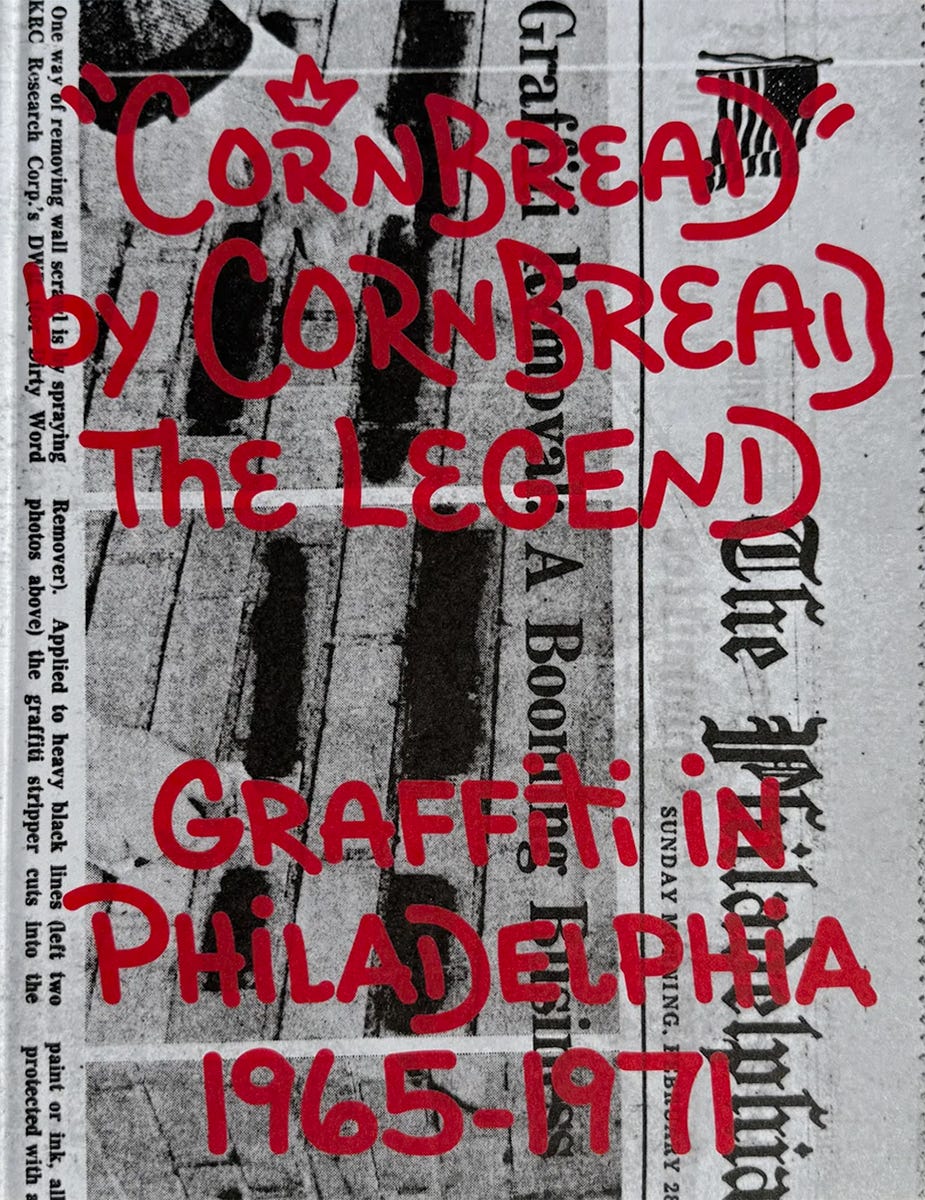 "CORNBREAD"
by CORNBREAD
THE LEGEND
GRAFFITI IN
PHILADELPHIA
1965-1971
The Philadelphia
SUNDAY MORNING, FEBRUARY 28
Graffiti Removal: A Booming Business
One way of removing wall scrawl is by spraying
KRC Research Corp.'s DWR (for Dirty Word
Remover). Applied to heavy black lines (left two
photos above) the graffiti stripper cuts into the
paint or ink,
protected with